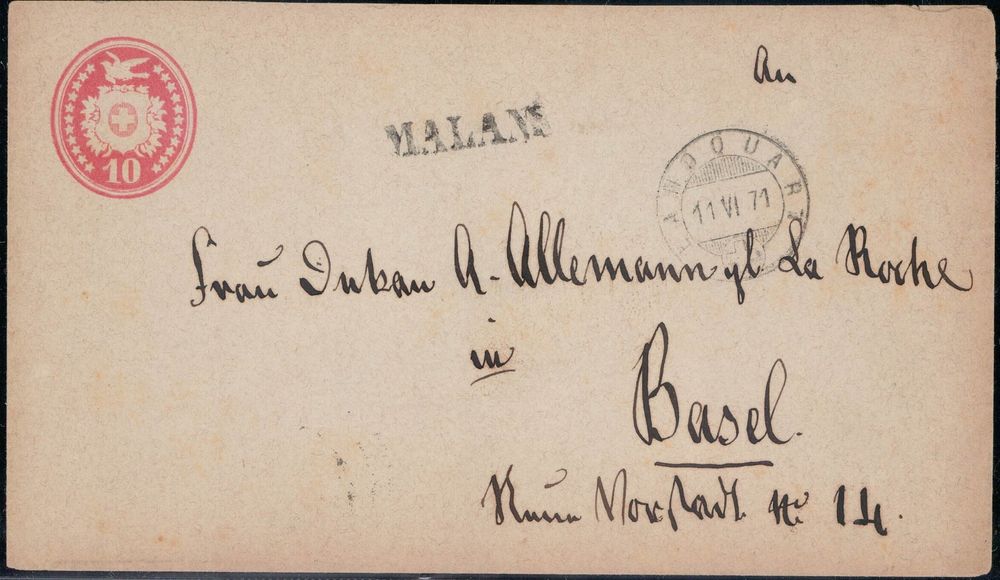 An
MALANS
LANDQUART
11 VI 71
10
Frau Dekan A. Allemann gb La Roche
in
Basel.
Neue Vorstadt No 14.